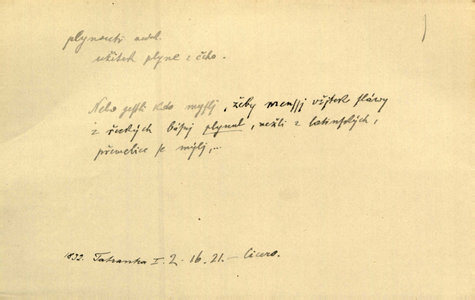 plynouti nedok.
užitek plyne z čeho.
Nebo gestli kdo myslj, žeby menssj vžitek slávy
z řeckých básnj plynul, nežli z latinských,
převelice se mýlj,..
1832. Tatranka I. 2. 16. 21. – Cicero.